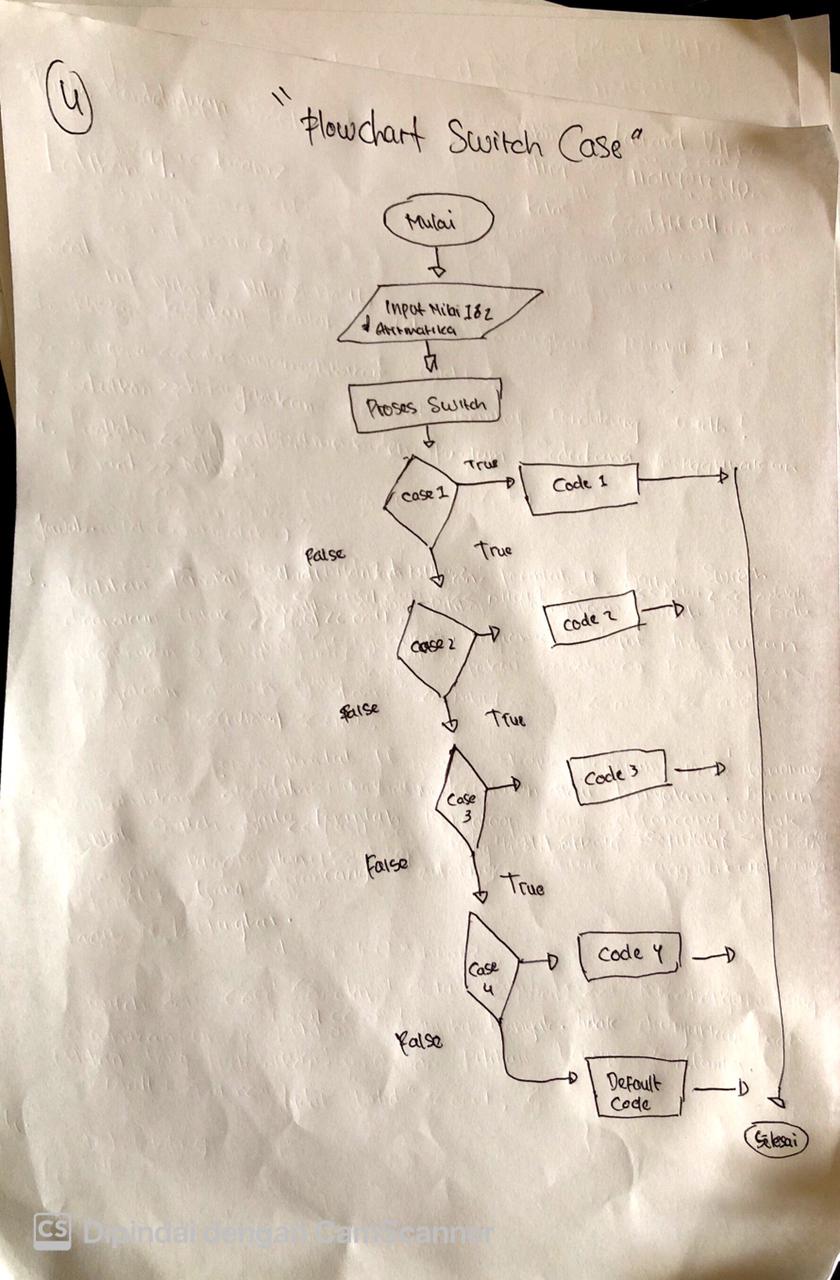 4
"Flowchart Switch Case"
Mulai
Input Nilai 1&2
Aritmatika
Proses Switch
True
case 1
Code 1
False
True
case 2
code 2
False
True
Case
3
Code 3
False
True
Case
4
Code 4
False
Default
Code
Selesai
CS Dipindai dengan CamScanner